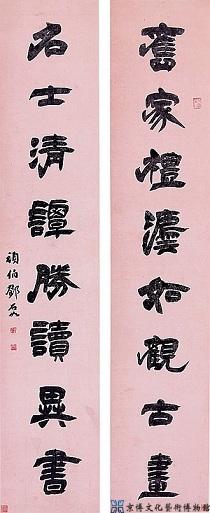 舊家禮濩如觀古畫
名士清譚勝讀異書
頑伯鄧石如
京博文化藝術博物館